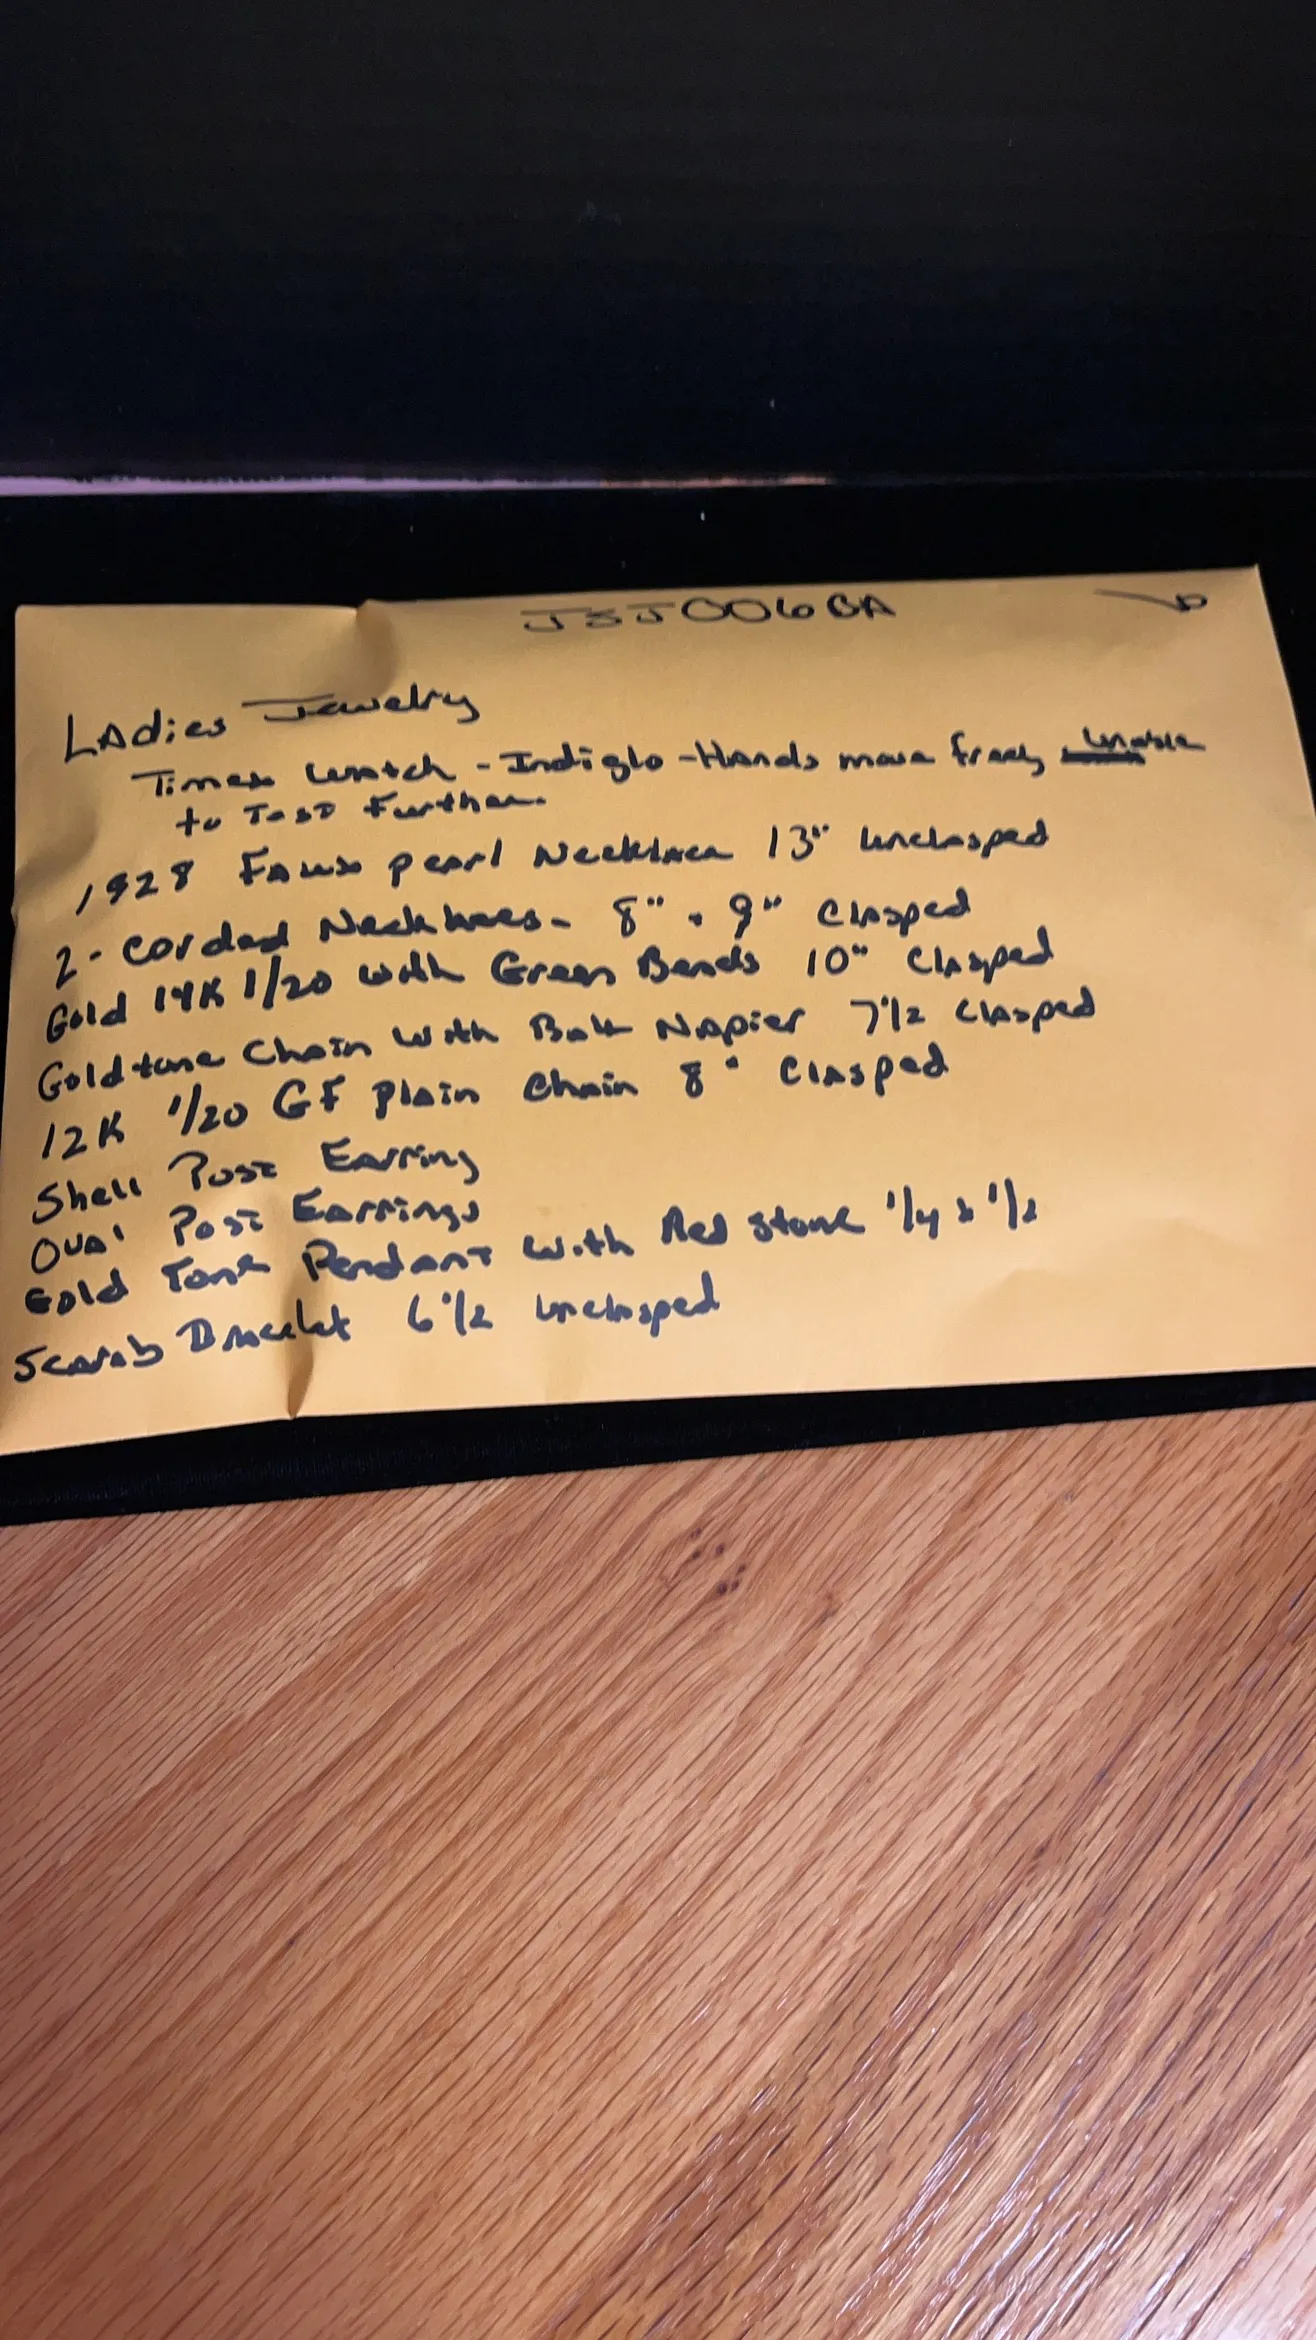 JSJ006BA
Ladies Jewelry
Timex Watch - Indiglo - Hands move freely Unable
to Test Further.
1928 Faux pearl Necklace 13" unclasped
2 - Corded Necklaces - 8" - 9" Clasped
Gold 14K 1/20 with Green Beads 10" Clasped
Goldtone Chain with Napier 7 1/2 Clasped
12K 1/20 GF Plain Chain 8" Clasped
Shell Post Earring
Oval Post Earrings
Gold Tone Pendant with Red stone 1/4 x 1/2
Scarab Bracelet 6 1/2 unclasped